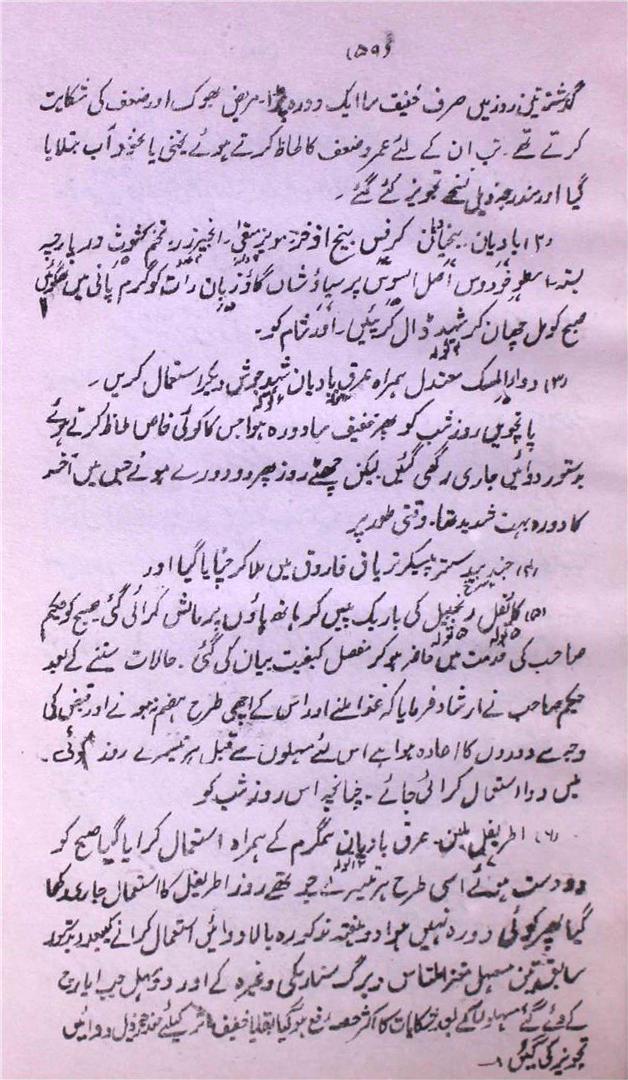 (۵۹)
گذشتہ تین روز میں صرف خفیف سا ایک دورہ پڑا۔ مریض بھوک اور ضعف کی شکایت
کرتے تھے۔ تب ان کے لئے عمر و ضعف کا لحاظ کرتے ہوئے یخنی یا نخود آب بتلایا
گیا اور مندرجہ ذیل نسخے تجویز کئے گئے۔
(۲) بادیان۔ بیخ کرفس بیخ اذخر مویز منقیٰ۔ انجیر زرد تخم کثوث در پارچہ
بستہ اسطوخودوس اصل السوس پرسیاؤشاں گاؤزبان رات کو گرم پانی میں بھگوئیں
صبح کو مل چھان کر شہد ڈال کر پئیں۔ اور شام کو۔
(۳) دواء المسک معتدل ہمراہ عرق بادیان شہد جوش دیکر استعمال کریں۔
پانچویں روز شب کو پھر خفیف سا دورہ ہوا جس کا کوئی خاص لحاظ کرتے ہوئے
بدستور دوائیں جاری رکھی گئیں لیکن چھٹے روز پھر دو دورے ہوئے جس میں آخر
کا دورہ بہت شدید تھا۔ وقتی طور پر
(۴) جند بیدستر پیسکر تریاق فاروق میں ملا کر چٹایا گیا اور
(۵) زنجبیل کی باریک پیس کر ہاتھ پاؤں پر مالش کرائی گئی صبح کو حکیم
صاحب کی خدمت میں حاضر ہو کر مفصل کیفیت بیان کی گئی۔ حالات سننے کے بعد
حکیم صاحب نے ارشاد فرمایا کہ غذا ملنے اور اس کے اچھی طرح ہضم نہ ہونے اور قبض کی
وجہ سے دوروں کا اعادہ ہوا ہے اس لئے مسہلوں سے قبل ہر تیسرے روز کوئی
ملین دوا استعمال کرائی جائے۔ چنانچہ اس روز شب کو
(۶) اطریفل ملین۔ عرق بادیان نیمگرم کے ہمراہ استعمال کرایا گیا صبح کو
دو دست ہوئے اسی طرح ہر تیسرے چوتھے روز اطریفل کا استعمال جاری رکھا
گیا پھر کوئی دورہ نہیں ہوا دو ہفتہ مذکورہ بالا دوائیں استعمال کرانے کے بعد بدستور
سابقہ تین مسہل مغز املتاس و برگ سنا مکی وغیرہ کے اور دو مسہل حب ایارج
کے دئے گئے مسہلوں کے بعد شکایات کا اکثر حصہ رفع ہو گیا بقایا خفیف اثر کیلئے مندرجہ ذیل دوائیں
تجویز کی گئیں۔